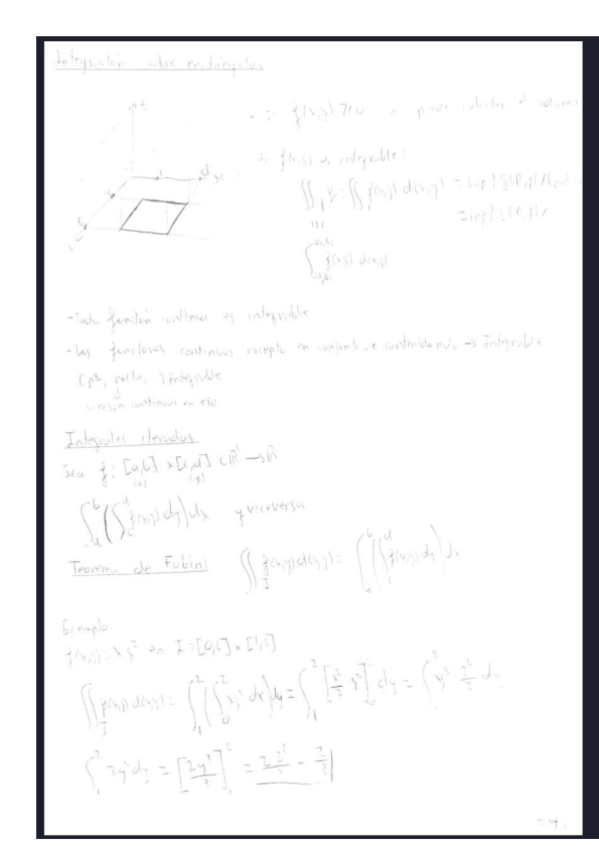 Integración sobre rectángulos
z
d
y
- si f(x,y) ≥ 0 → puedo calcular el volumen
Si f(x,y) es integrable:
∬_I f = ∬_I f(x,y) d(x,y) = sup{
= inf{
∫ f(x,y) d(x,y)
- Toda función continua es integrable
- Las funciones continuas excepto en conjunto de contenido nulo → Integrable
integrable
continuas en eso.
Integrales iteradas
Sea f: [a,b] × [c,d] ⊂ ℝ² → ℝ
(x) (y)
∫_a^b (∫_c^d f(x,y) dy) dx y viceversa
Teorema de Fubini ∬_I f(x,y) d(x,y) = ∫_a^b (∫_c^d f(x,y) dy) dx
Ejemplo
f(x,y) = x y² en I = [0,2] × [1,2]
∬_I f(x,y) d(x,y) = ∫_1^2 (∫_0^2 xy² dx) dy = ∫_1^2 [x²/2 y²]_0^2 dy = ∫_1^2 y² 2²/2 dy
∫_1^2 2y² dy = [2y³/3]_1^2 = 2·2³/3 - 2/3